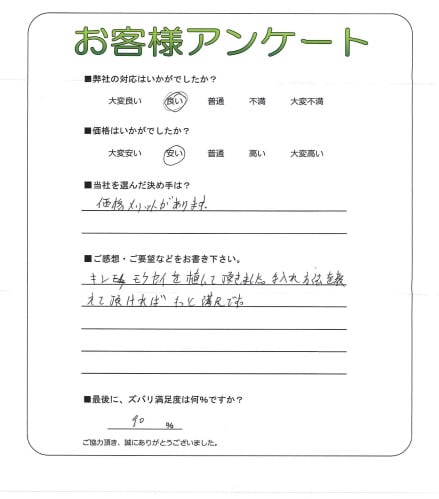 お客様アンケート
■弊社の対応はいかがでしたか?
大変良い 良い 普通 不満 大変不満
■価格はいかがでしたか?
大変安い 安い 普通 高い 大変高い
■当社を選んだ決め手は?
価格メリットがあります。
■ご感想・ご要望などをお書き下さい。
キンモクセイを植えて頂きました。手入れ方法を教
えて頂ければもっと満足です。
■最後に、ズバリ満足度は何%ですか?
90 %
ご協力頂き、誠にありがとうございました。